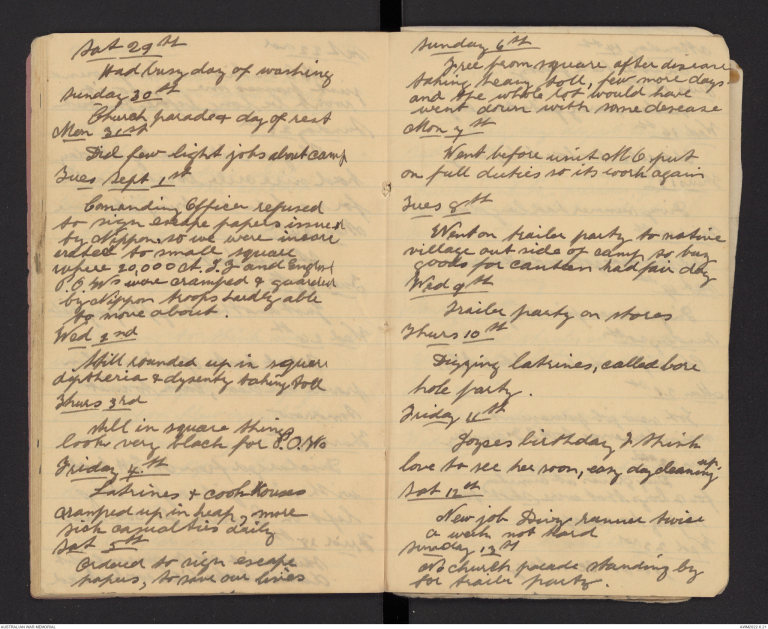 Sat 29th
Had busy day of washing
Sunday 30th
Church parade & day of rest
Mon 31st
Did few light jobs about camp
Tues Sept 1st
Comanding Officer refused
to sign escape papers issued
by Nippon, so we were incare
erated to small square
where 20,000 A.I.F and English
P.O.Ws were cramped & guarded
by Nippon troops hardly able
to move about.
Wed 2nd
Still rounded up in square
dyptheria & dysentry taking toll
Thurs 3rd
still in square things
look very black for P.O.Ws
Friday 4th
Latrines & cook Houses
cramped up in heap, more
sick casualties daily
Sat 5th
Ordered to sign escape
papers, to save our lives
Sunday 6th
Free from square after disease
taking heavy toll, few more days
and the whole lot would have
went down with some desease
Mon 7th
Went before unit M O, put
on full duties so its work again
Tues 8th
Went on trailer party to native
village out side of camp to buy
goods for canteen had fair day
Wed 9th
Trailer party on stores
Thurs 10th
Digging latrines, called bore
hole party.
Friday 11th
Joyces birthday I think
love to see her soon, easy day cleaning up
Sat 12th
New job Divy runner twice
a week not hard
Sunday 13th
No church parade standing by
for trailer party.
AUSTRALIAN WAR MEMORIAL